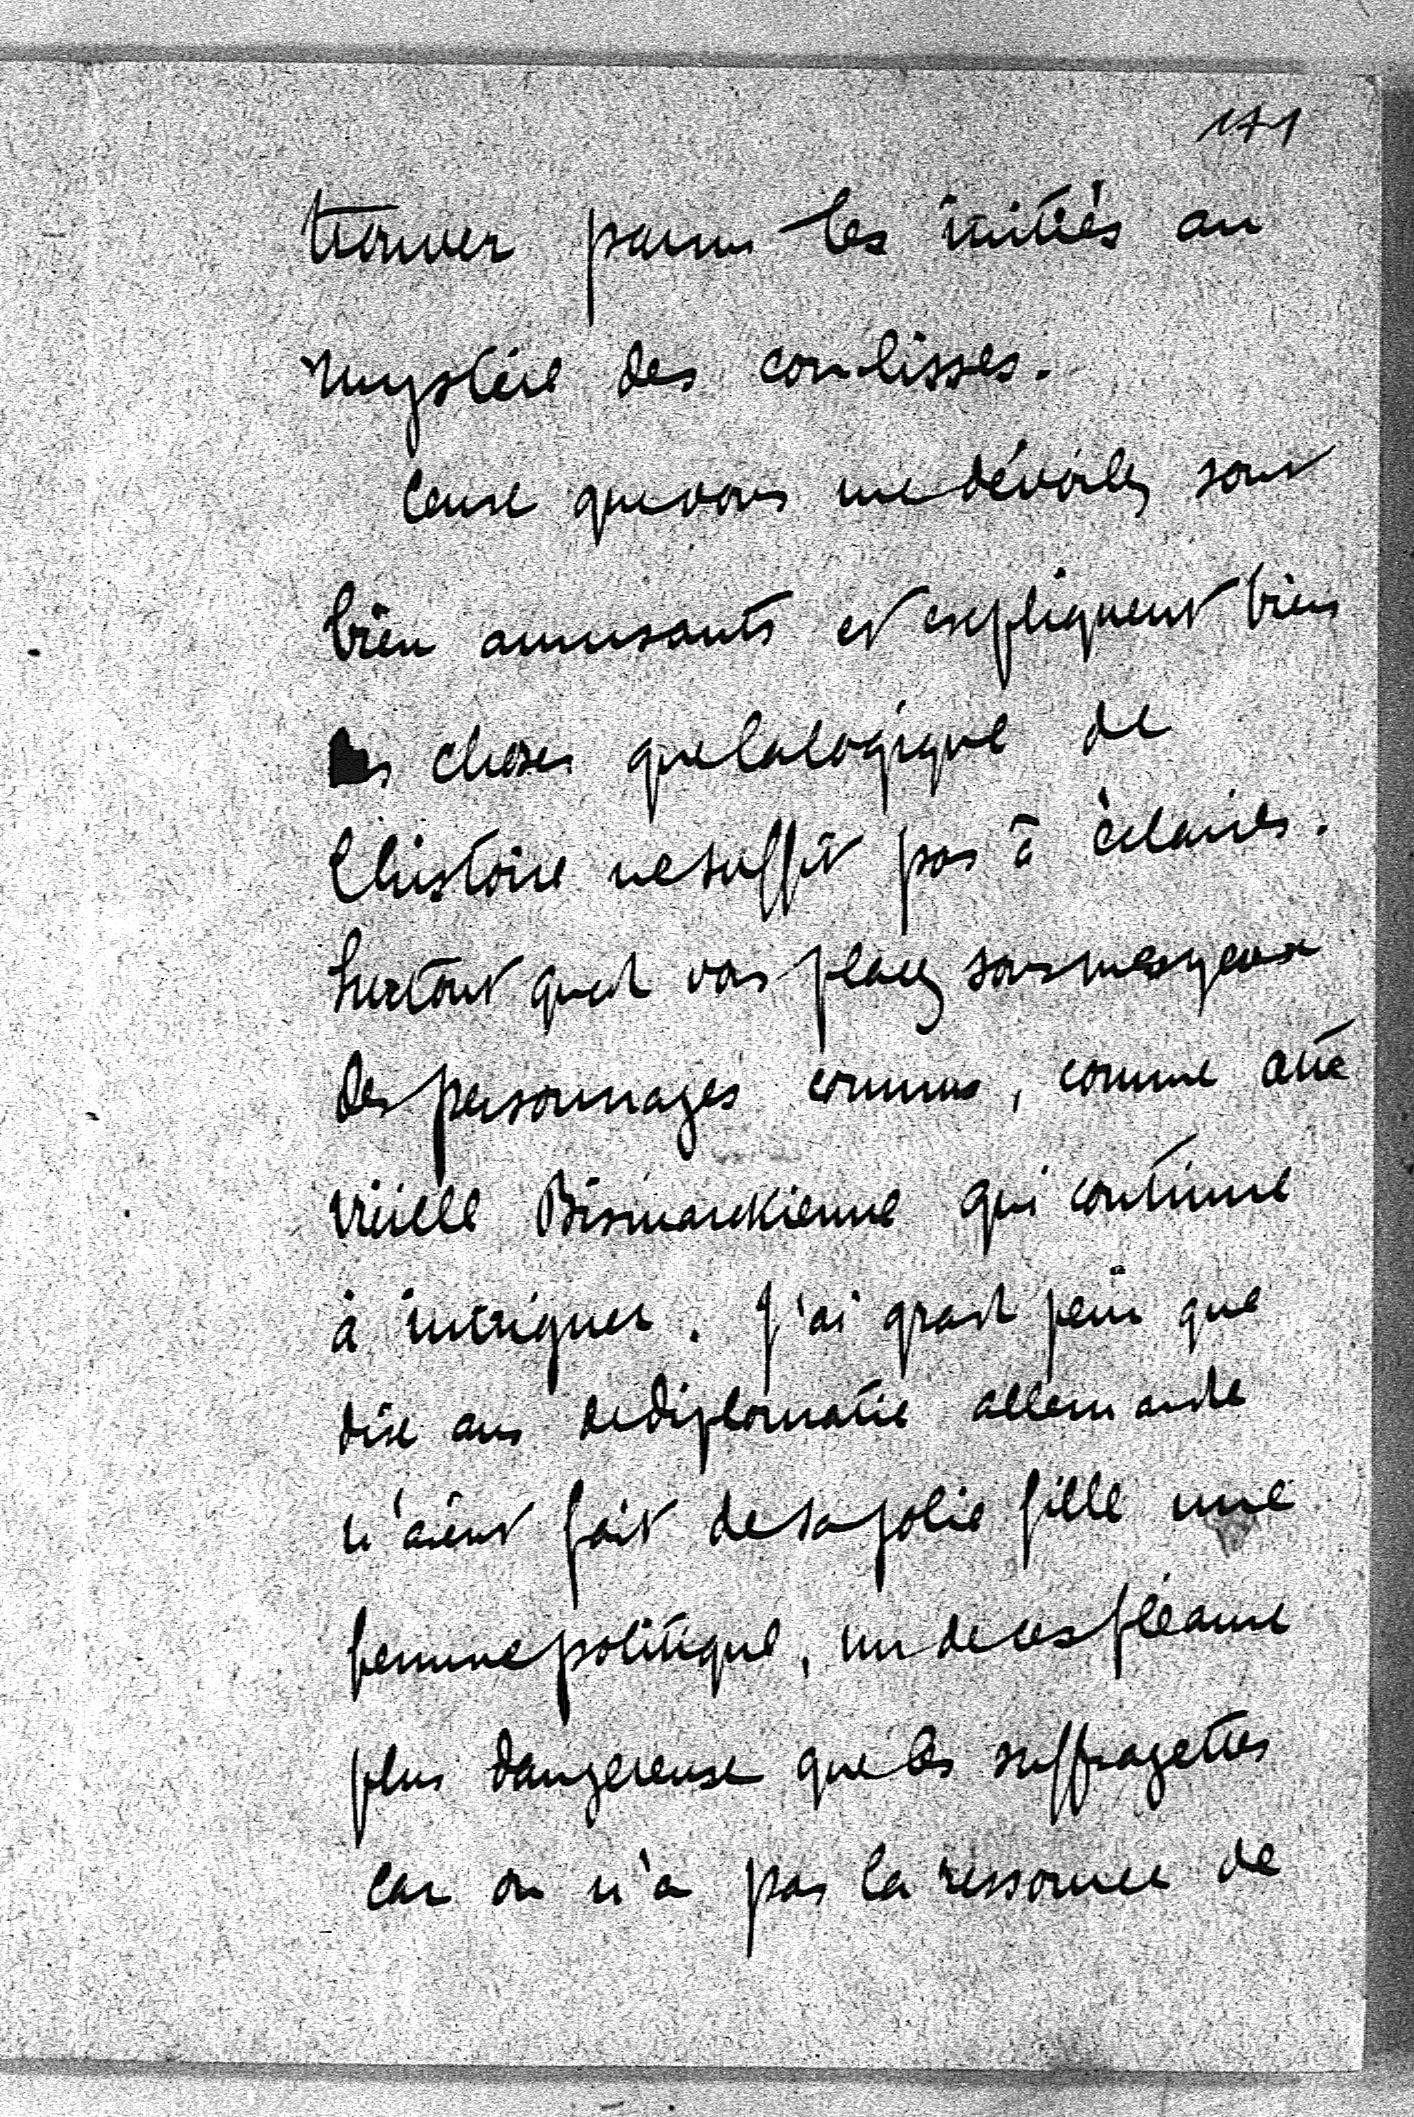 171
trouver parmi les initiés au
mystère des coulisses.
Ceux que vous me dévoilez sont
bien amusants et expliquent bien
des choses que la logique de
l'histoire ne suffit pas à éclairer.
Surtout quand vous placez sous mes yeux
des personnages connus, comme cette
vieille Bismarckienne qui continue
à intriguer. J'ai grand peur que
dix ans de diplomatie allemande
n'aient fait de sa jolie fille une
femme politique, un de ces fléaux
plus dangereux que les suffragettes
car on n'a pas la ressource de